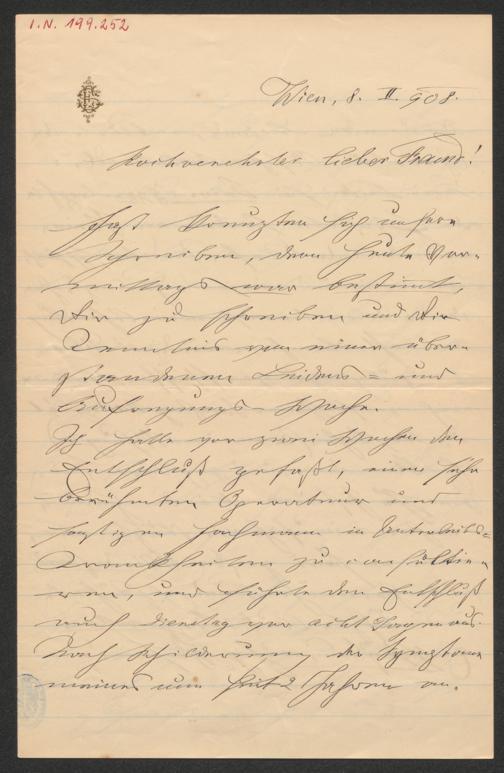 I.N. 199.252
Wien, 8. II. 908.
Hochverehrter lieber Freund!
Fast kreuzten sich unsere
Schreiben, denn heute Vor-
mittags war bestimmt,
Dir zu schreiben und Dir
Kenntnis von einer über-
standenen Leidens- und
Aufregungs-Woche.
Ich hatte vor zwei Wochen den
Entschluß gefaßt, einen sehr
berühmten Operateur und
sonstigen Fachmann in Unterleibs-
Krankheiten zu consultie-
ren, und führte den Entschluß
auch Dienstag vor acht Tagen aus.
Nach Schilderung der Symptome
meines nun seit 2 Jahren an-